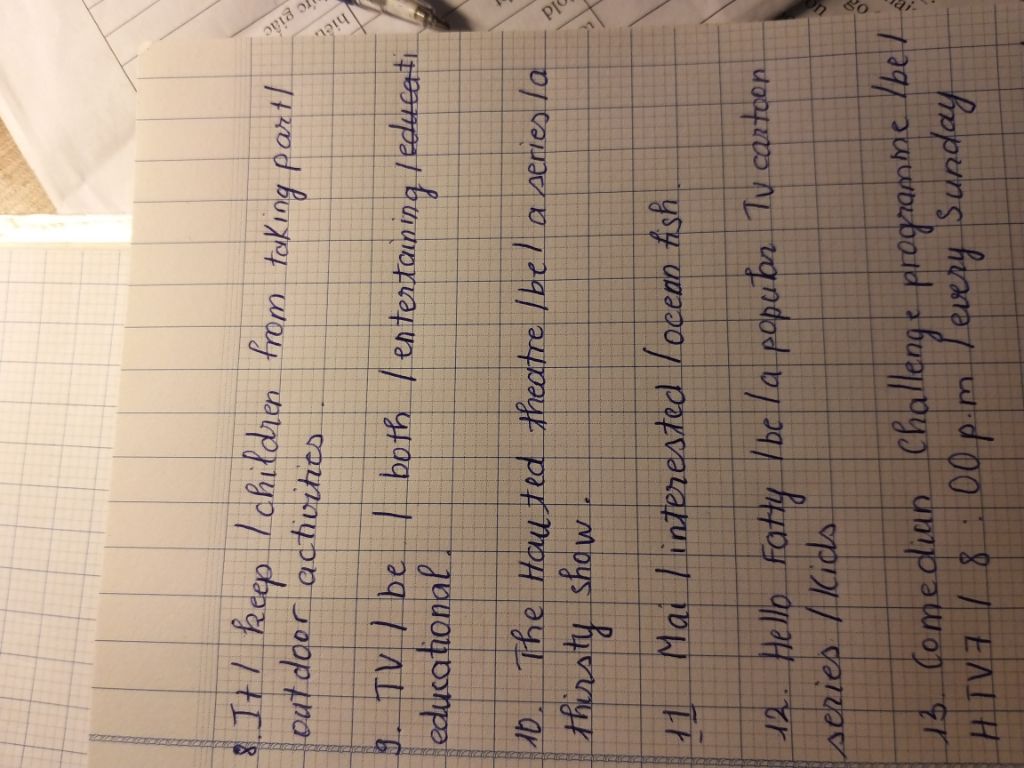 8. It / keep / children from taking part /
outdoor activities.
9. TV / be / both / entertaining / educati
educational.
10. The Hauted theatre / be / a series / a
thirsty show.
11 Mai / interested / ocean fish.
12. Hello Fatty / be / a popular Tv cartoon
series / Kids
13. Comedian Challenge programme / be /
HTV7 / 8:00 p.m / every Sunday
old
go